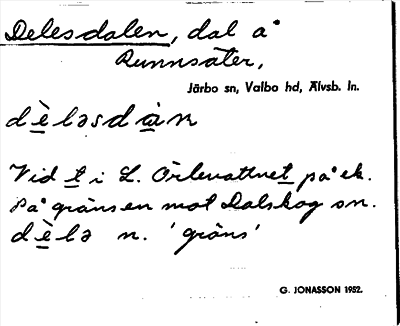 Delesdalen, dal å
Runnsäter,
Järbo sn, Valbo hd, Älvsb. ln.
dè̱ləsdà̱n
Vid t i L. Örlevattnet på ek.
På gränsen mot Dalskog sn.
dè̱lə n. 'gräns'
G. JONASSON 1952.